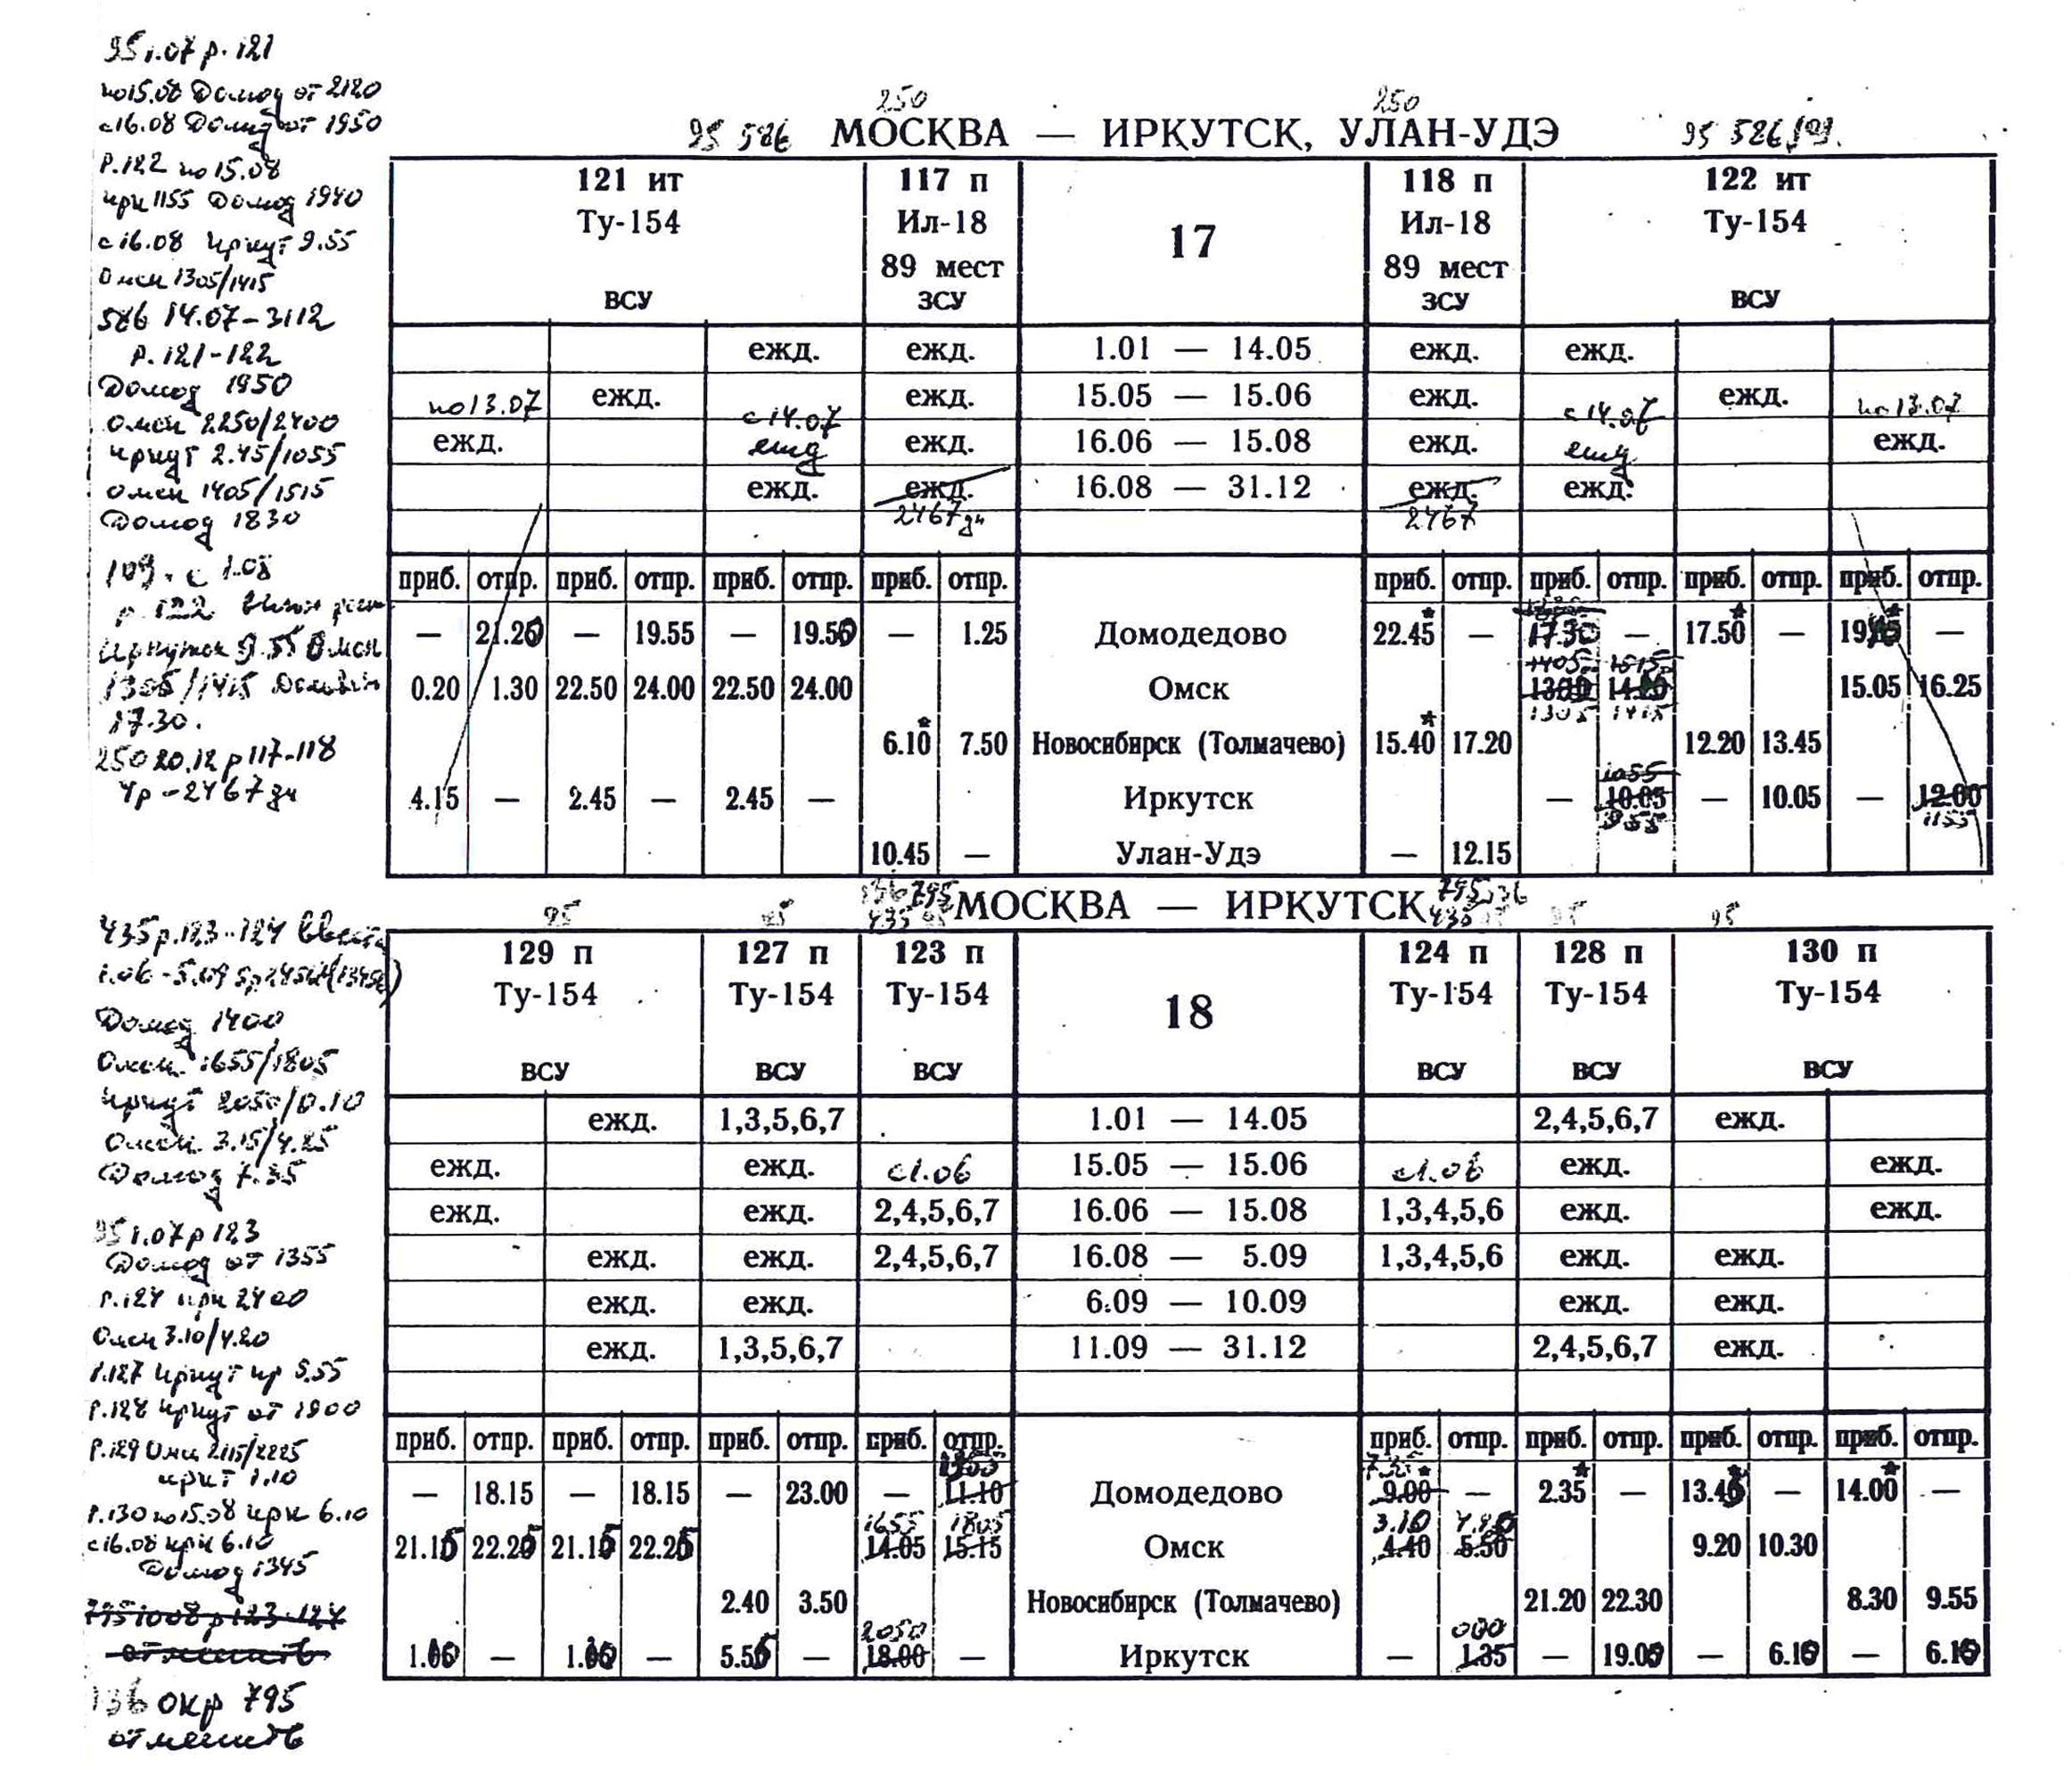 95 1.07 р. 121
по 15.08 Домод от 2120
с 16.08 Домод от 1950
Р.122 по 15.08
ирк 1155 Домод 1940
с 16.08 Иркут 9.55
Омск 1305/1415
586 14.07-3112
р. 121-122
Домод 1950
Омск 2250/2400
Иркут 2.45/1055
Омск 1405/1515
Домод 1830
109. с 1.08
р. 122
Иркутск 9.55 Омск
1305/1415
17.30.
250 20.12 р 117-118
2467
250 250
95 586 МОСКВА — ИРКУТСК, УЛАН-УДЭ 95 586
121 ит 117 п 17 118 п 122 ит
Ту-154 Ил-18 Ил-18 Ту-154
89 мест 89 мест
ВСУ ЗСУ ЗСУ ВСУ
ежд. ежд. 1.01 — 14.05 ежд. ежд.
по 13.07 ежд. ежд. 15.05 — 15.06 ежд. ежд. по 13.07
с 14.07 с 14.07
ежд. ежд ежд. 16.06 — 15.08 ежд. ежд ежд.
ежд. ежд. 16.08 — 31.12 ежд. ежд.
2467 дн 2467
приб. отпр. приб. отпр. приб. отпр. приб. отпр. приб. отпр. приб. отпр. приб. отпр. приб. отпр.
— 21.20 — 19.55 — 19.50 — 1.25 Домодедово 22.45* — 17.30 — 17.50* — —
1405 1515
0.20 1.30 22.50 24.00 22.50 24.00 Омск 15.05 16.25
1305 1415
6.10* 7.50 Новосибирск (Толмачево) 15.40* 17.20 12.20 13.45
1055
4.15 — 2.45 — 2.45 — Иркутск — 10.05 — 10.05 — 12.00
955 1155
10.45 — Улан-Удэ — 12.15
МОСКВА — ИРКУТСК
95 95 435 95 95
435 р.123-124 ввести
Домод 1400
Омск 1655/1805
Иркут 2050/0.10
Омск 3.15/4.25
Домод 7.35
95 1.07 р 123
Домод от 1355
р.124 ирк 2400
Омск 3.10/4.20
р.127 Иркут пр 5.55
р.128 Иркут от 1900
Р.129 Омск 2115/2225
ирк 1.10
Р.130 по 15.08 ирк 6.10
с 16.08 ирк 6.10
Домод 1345
795 1008 р 123-124
отменить
136 окр 795
отменить
129 п 127 п 123 п 18 124 п 128 п 130 п
Ту-154 Ту-154 Ту-154 Ту-154 Ту-154 Ту-154
ВСУ ВСУ ВСУ ВСУ ВСУ ВСУ
ежд. 1,3,5,6,7 1.01 — 14.05 2,4,5,6,7 ежд.
ежд. ежд. с 1.06 15.05 — 15.06 с 1.06 ежд. ежд.
ежд. ежд. 2,4,5,6,7 16.06 — 15.08 1,3,4,5,6 ежд. ежд.
ежд. ежд. 2,4,5,6,7 16.08 — 5.09 1,3,4,5,6 ежд. ежд.
ежд. ежд. 6.09 — 10.09 ежд. ежд.
ежд. 1,3,5,6,7 11.09 — 31.12 2,4,5,6,7 ежд.
приб. отпр. приб. отпр. приб. отпр. приб. отпр. приб. отпр. приб. отпр. приб. отпр. приб. отпр.
— 18.15 — 18.15 — 23.00 — 11.10 Домодедово 9.00* — 2.35* — 13.45* — 14.00* —
1655 1805 3.10 4.20
21.15 22.25 21.15 22.25 14.05 15.15 Омск 4.40 5.50 9.20 10.30
2.40 3.50 Новосибирск (Толмачево) 21.20 22.30 8.30 9.55
2050 000
— — 5.55 — 18.00 — Иркутск — 1.35 — 19.00 — 6.10 — 6.10